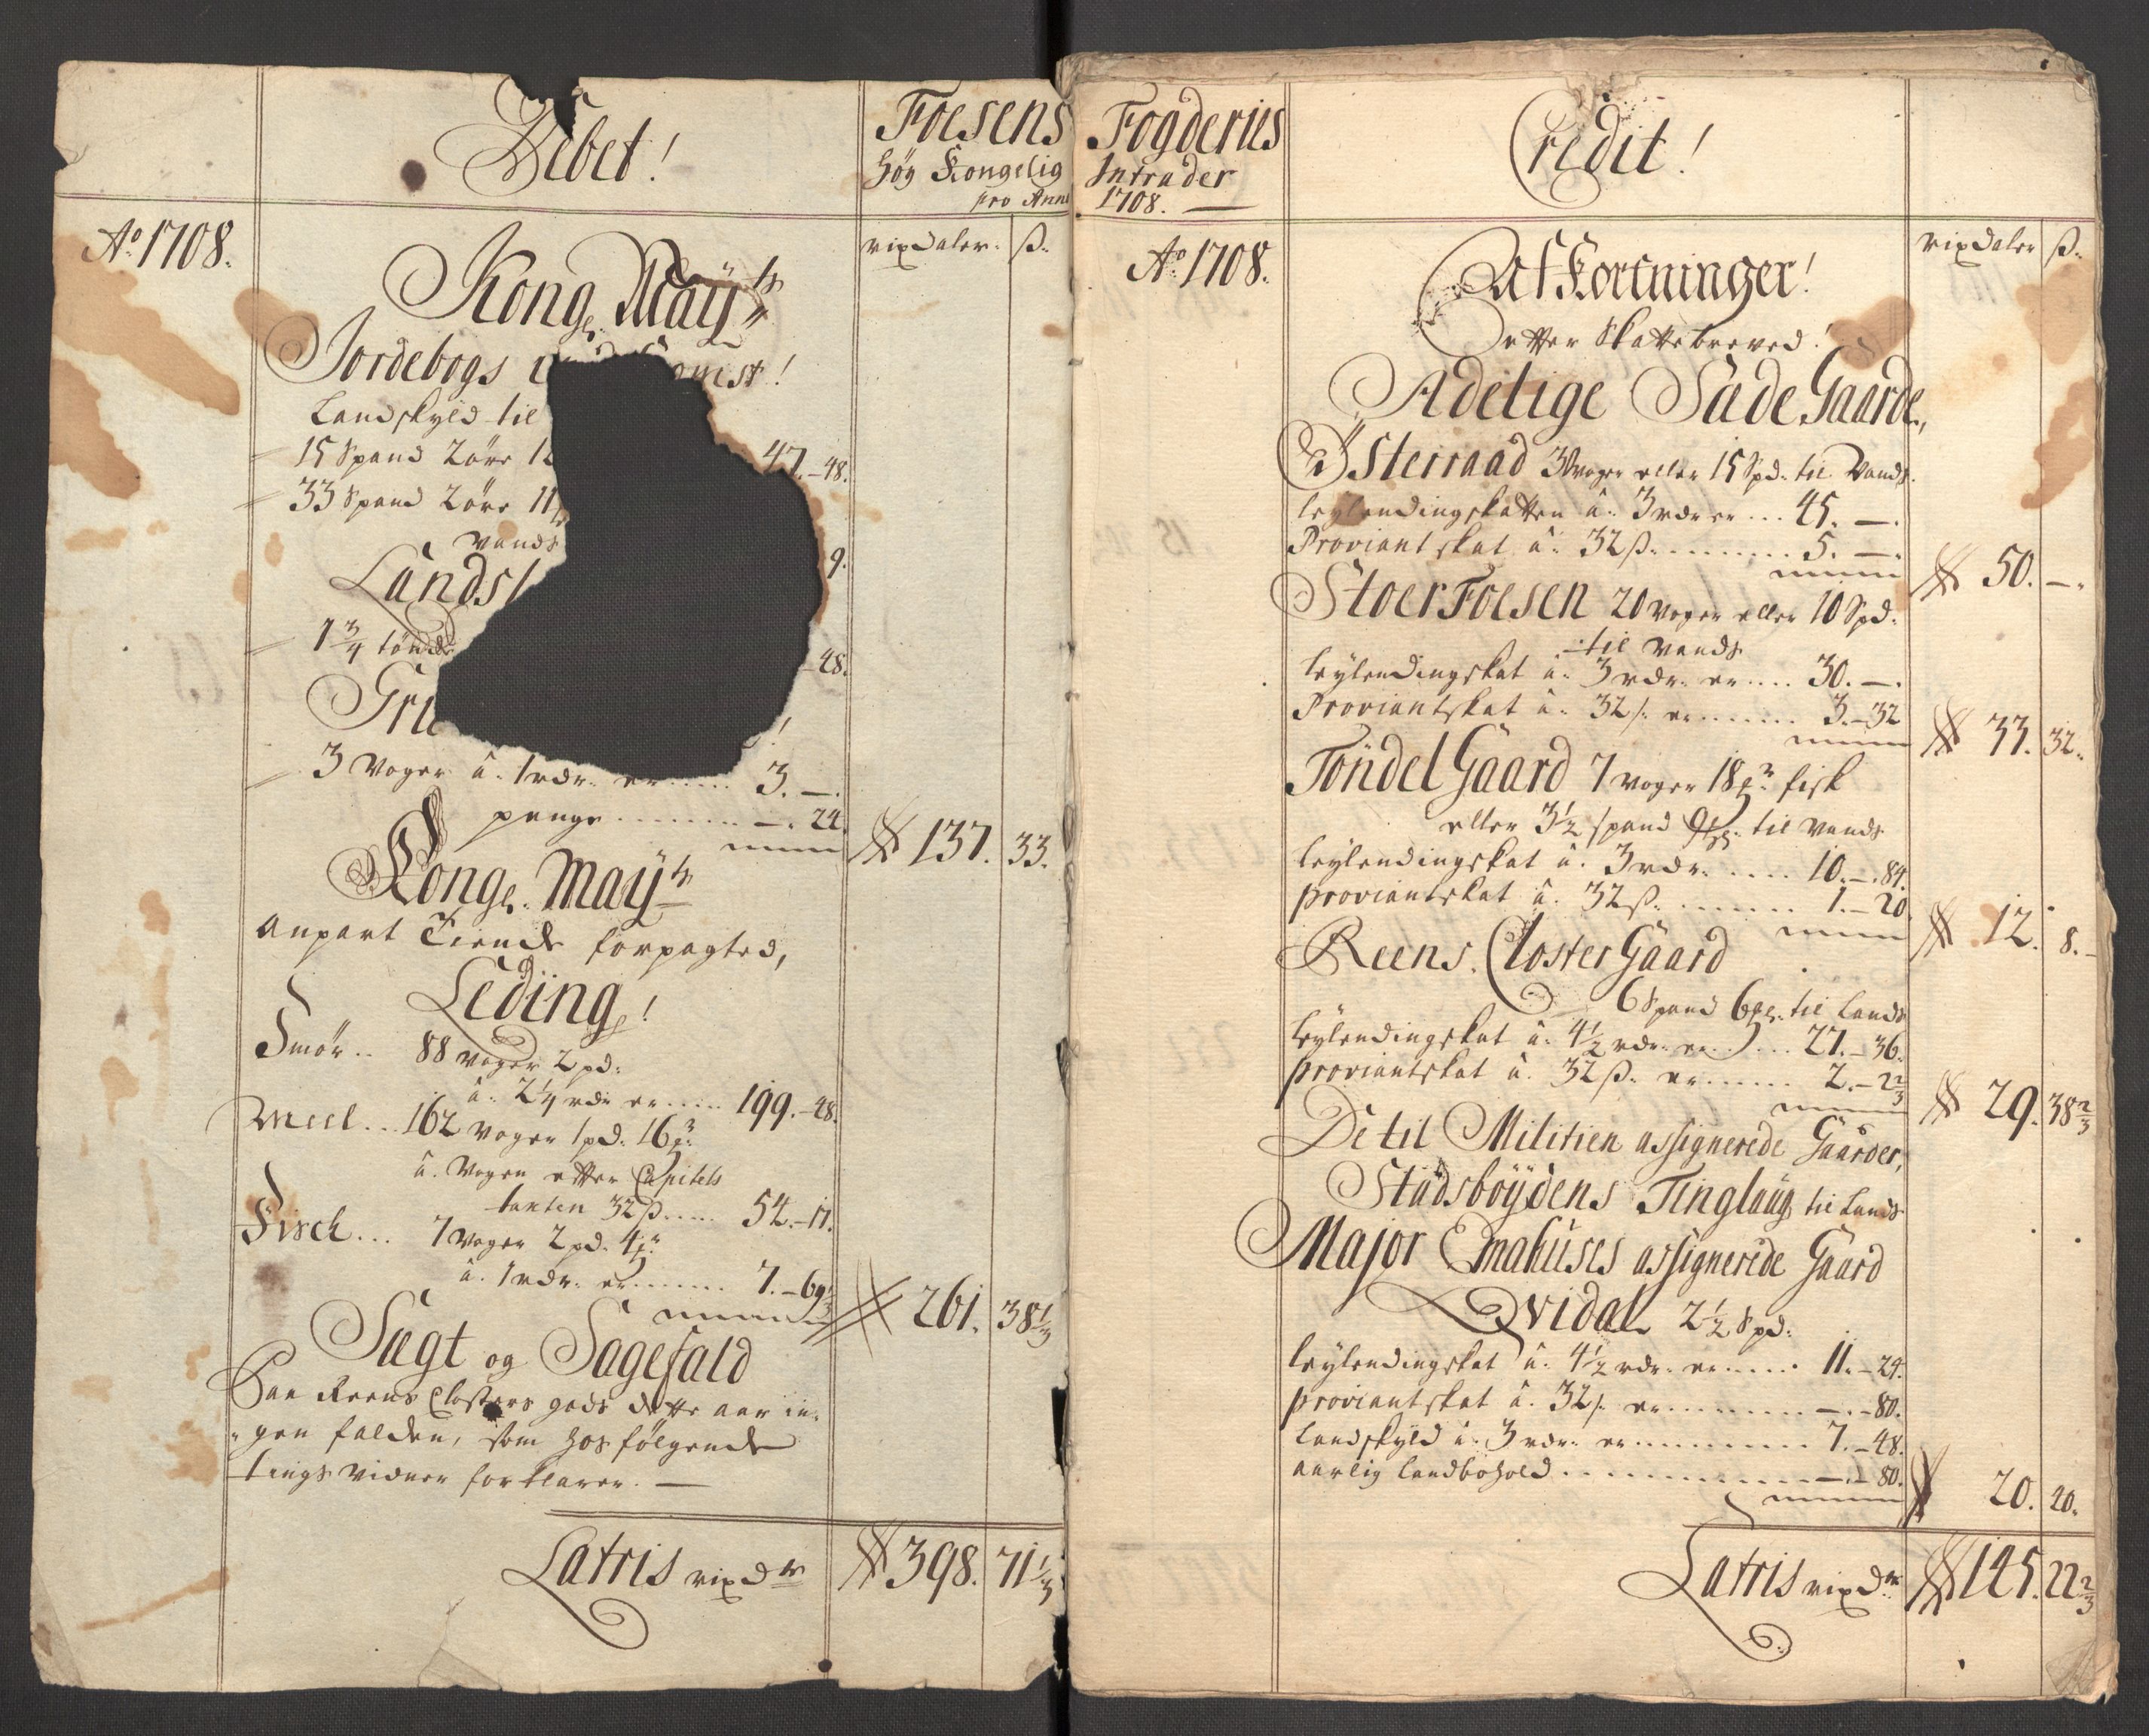 Debet!
Foesens
Höy Kongelig
pro Anno
Ao. 1708.
rixdaler. ß.
Kong. Mayts
Jordebogs
Landskyld til
15 Spand 2 öre 12
47.-48.
33 Spand 2 öre 11
Vands
9.
Landsk
1 3/4 tönde
-48.
Gru
3 Voger á. 1 rdr. er ..... 3. —.
penge ........ —. 24.
137. 33.
Kong. Mayts
Anpart Tiende forpagted,
Leding!
Smör .. 88 Voger 2 pd:
á. 2 1/4 rdr er .... 199.-48.
Meel... 162 Voger 1 pd. 16
á. Vogen efter Capitels
taxten 32 ß ..... 54.-17.
Fisch... 7 Voger 2 pd. 4
á. 1 rdr. er ...... 7.-69 1/3
261. 38 1/3
Sagt og Sagefald
Paa Reens Closters gods dette aar in-
gen falden, som hos fölgende
tings vidner forklarer. —
Latris rixdr 398. 71 1/3
Fogderies
Intrader
1708. —
Credit!
Ao. 1708.
rixdaler ß.
Afkortninger!
efter Skattebreved!
Adelige Sæde Gaarde,
Östersaad 30 Voger eller 15 Spd. til Vands.
leylendingskatten á. 3 rdr er ... 45. —.
Proviantskat á. 32 ß. ....... 5. —.
50. —.
Stoer Foesen 20 Voger eller 10 Spd.
til Vands
leylendingskat á. 3 rdr. er .... 30. —.
Proviantskat á. 32 ß. er ...... 3.-32
33. 32.
Töndel Gaard 7 Voger 18 fisk
eller 3 1/2 spand til Vands
leylendingskat á. 3 rdr. .... 10.-84.
proviantskat á. 32 ß. ....... 1.-20.
12. 8.
Reens. Closter Gaard
6 Spand 6 til Lands
leylendingskat á. 4 1/2 rdr. er ... 27.-36.
proviantskat á. 32 ß. er ..... 2.-2 2/3
29. 38 2/3
De til Militien assignerede Gaarder,
Stadsböydens Tinglaug til Lands
Major Emahuses assignerede Gaard
Qvidal 2 1/2 Spd:
leylendingskat á. 4 1/2 rdr. er .... 11.-24.
proviantskat á. 32 ß. er ........ —.-80.
landskyld á. 3 rdr. er .......... 7.-48.
aarlig landbohold ............ —.-80.
20. 40.
Latris rixdr 145. 22 2/3